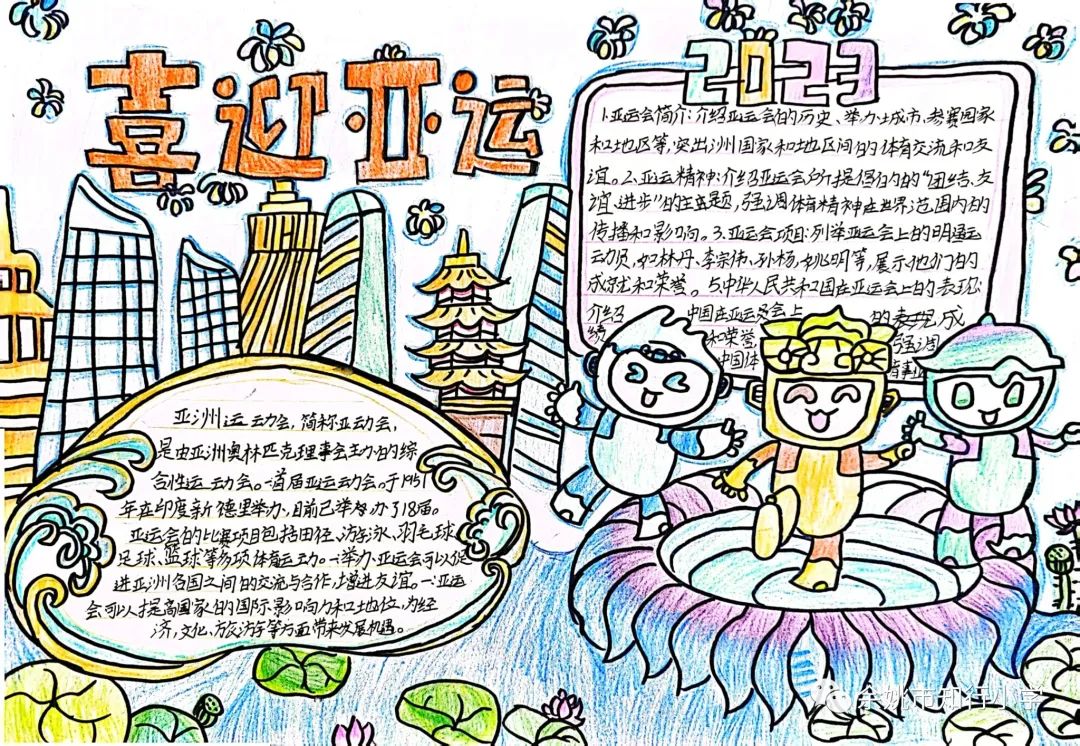 喜迎·亚·运
2023
1.亚运会简介:介绍亚运会的历史、举办城市、参赛国家
和地区等,突出洲国家和地区间的体育交流和友
谊。2.亚运精神:介绍亚运会所提倡的的“团结、友
谊、进步”的主题,强调体育精神在世界范围内的
传播和影响。3.亚运会项目:列举亚运会上的明通运
动员,如林丹、李宗伟、孙杨、姚明等,展示他们的
成就和荣誉。5.中华人民共和国在亚运会上的表现:
介绍 中国在亚运会上 的表现成
绩 和荣誉 强调
中国体 育事业
亚洲运动会,简称亚动会,
是由亚洲奥林匹克理事会主办的综
合性运动会。首届亚运运动会。于1951
年在印度新德里举办,目前已举办了18届。
亚运会的比赛项目包括田径、游泳、羽毛球
足球、篮球等多项体育运动。举办亚运会可以促
进亚洲各国之间的交流与合作,增进友谊。亚运
会可以提高国家的国际影响力和地位,为经
济,文化、旅游等方面带来发展机遇。
余姚市知行小学